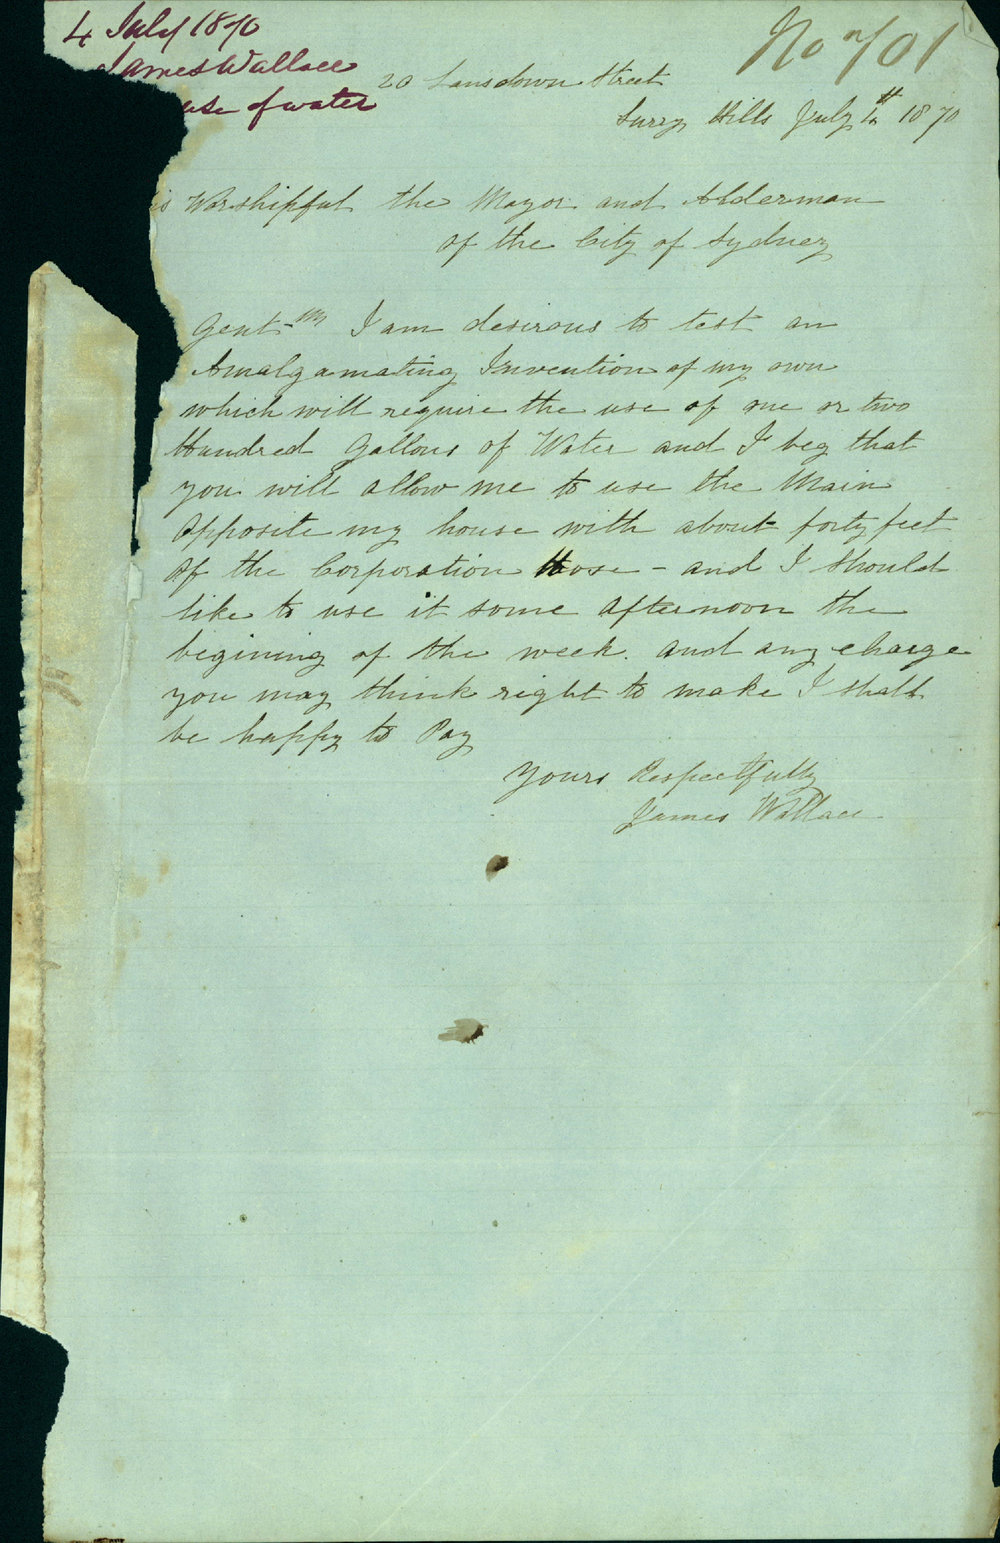 4 July 1870
James Wallace
use of water
No 701
20 Lansdown Street
Surry Hills July 4th 1870
is Worshipful the Mayor and Alderman
of the City of Sydney
Gent-m I am desirous to test an
Amalgamating Invention of my own
which will require the use of one or two
Hundred Gallons of Water and I beg that
you will allow me to use the Main
opposite my house with about forty feet
of the Corporation Hose - and I should
like to use it some afternoon the
begining of the week. and any charge
you may think right to make I shall
be happy to Pay
Yours Respectfully
James Wallace